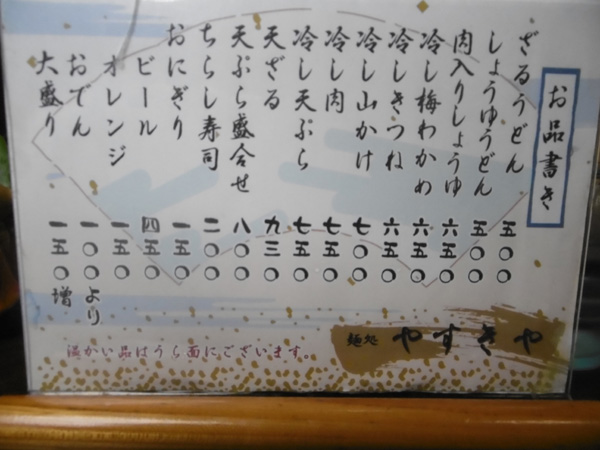 お品書き
ざるうどん 五〇〇
しょうゆうどん 五〇〇
肉入りしょうゆ 六五〇
冷し梅わかめ 六五〇
冷しきつね 六五〇
冷し山かけ 七〇〇
冷し肉 七五〇
冷し天ぷら 七五〇
天ざる 九三〇
天ぷら盛合せ 八〇〇
ちらし寿司 二〇〇
おにぎり 一五〇
ビール 四五〇
オレンジ 一五〇
おでん 一〇〇より
大盛り 一五〇増
麺処 やすきや
温かい品はうら面にございます。